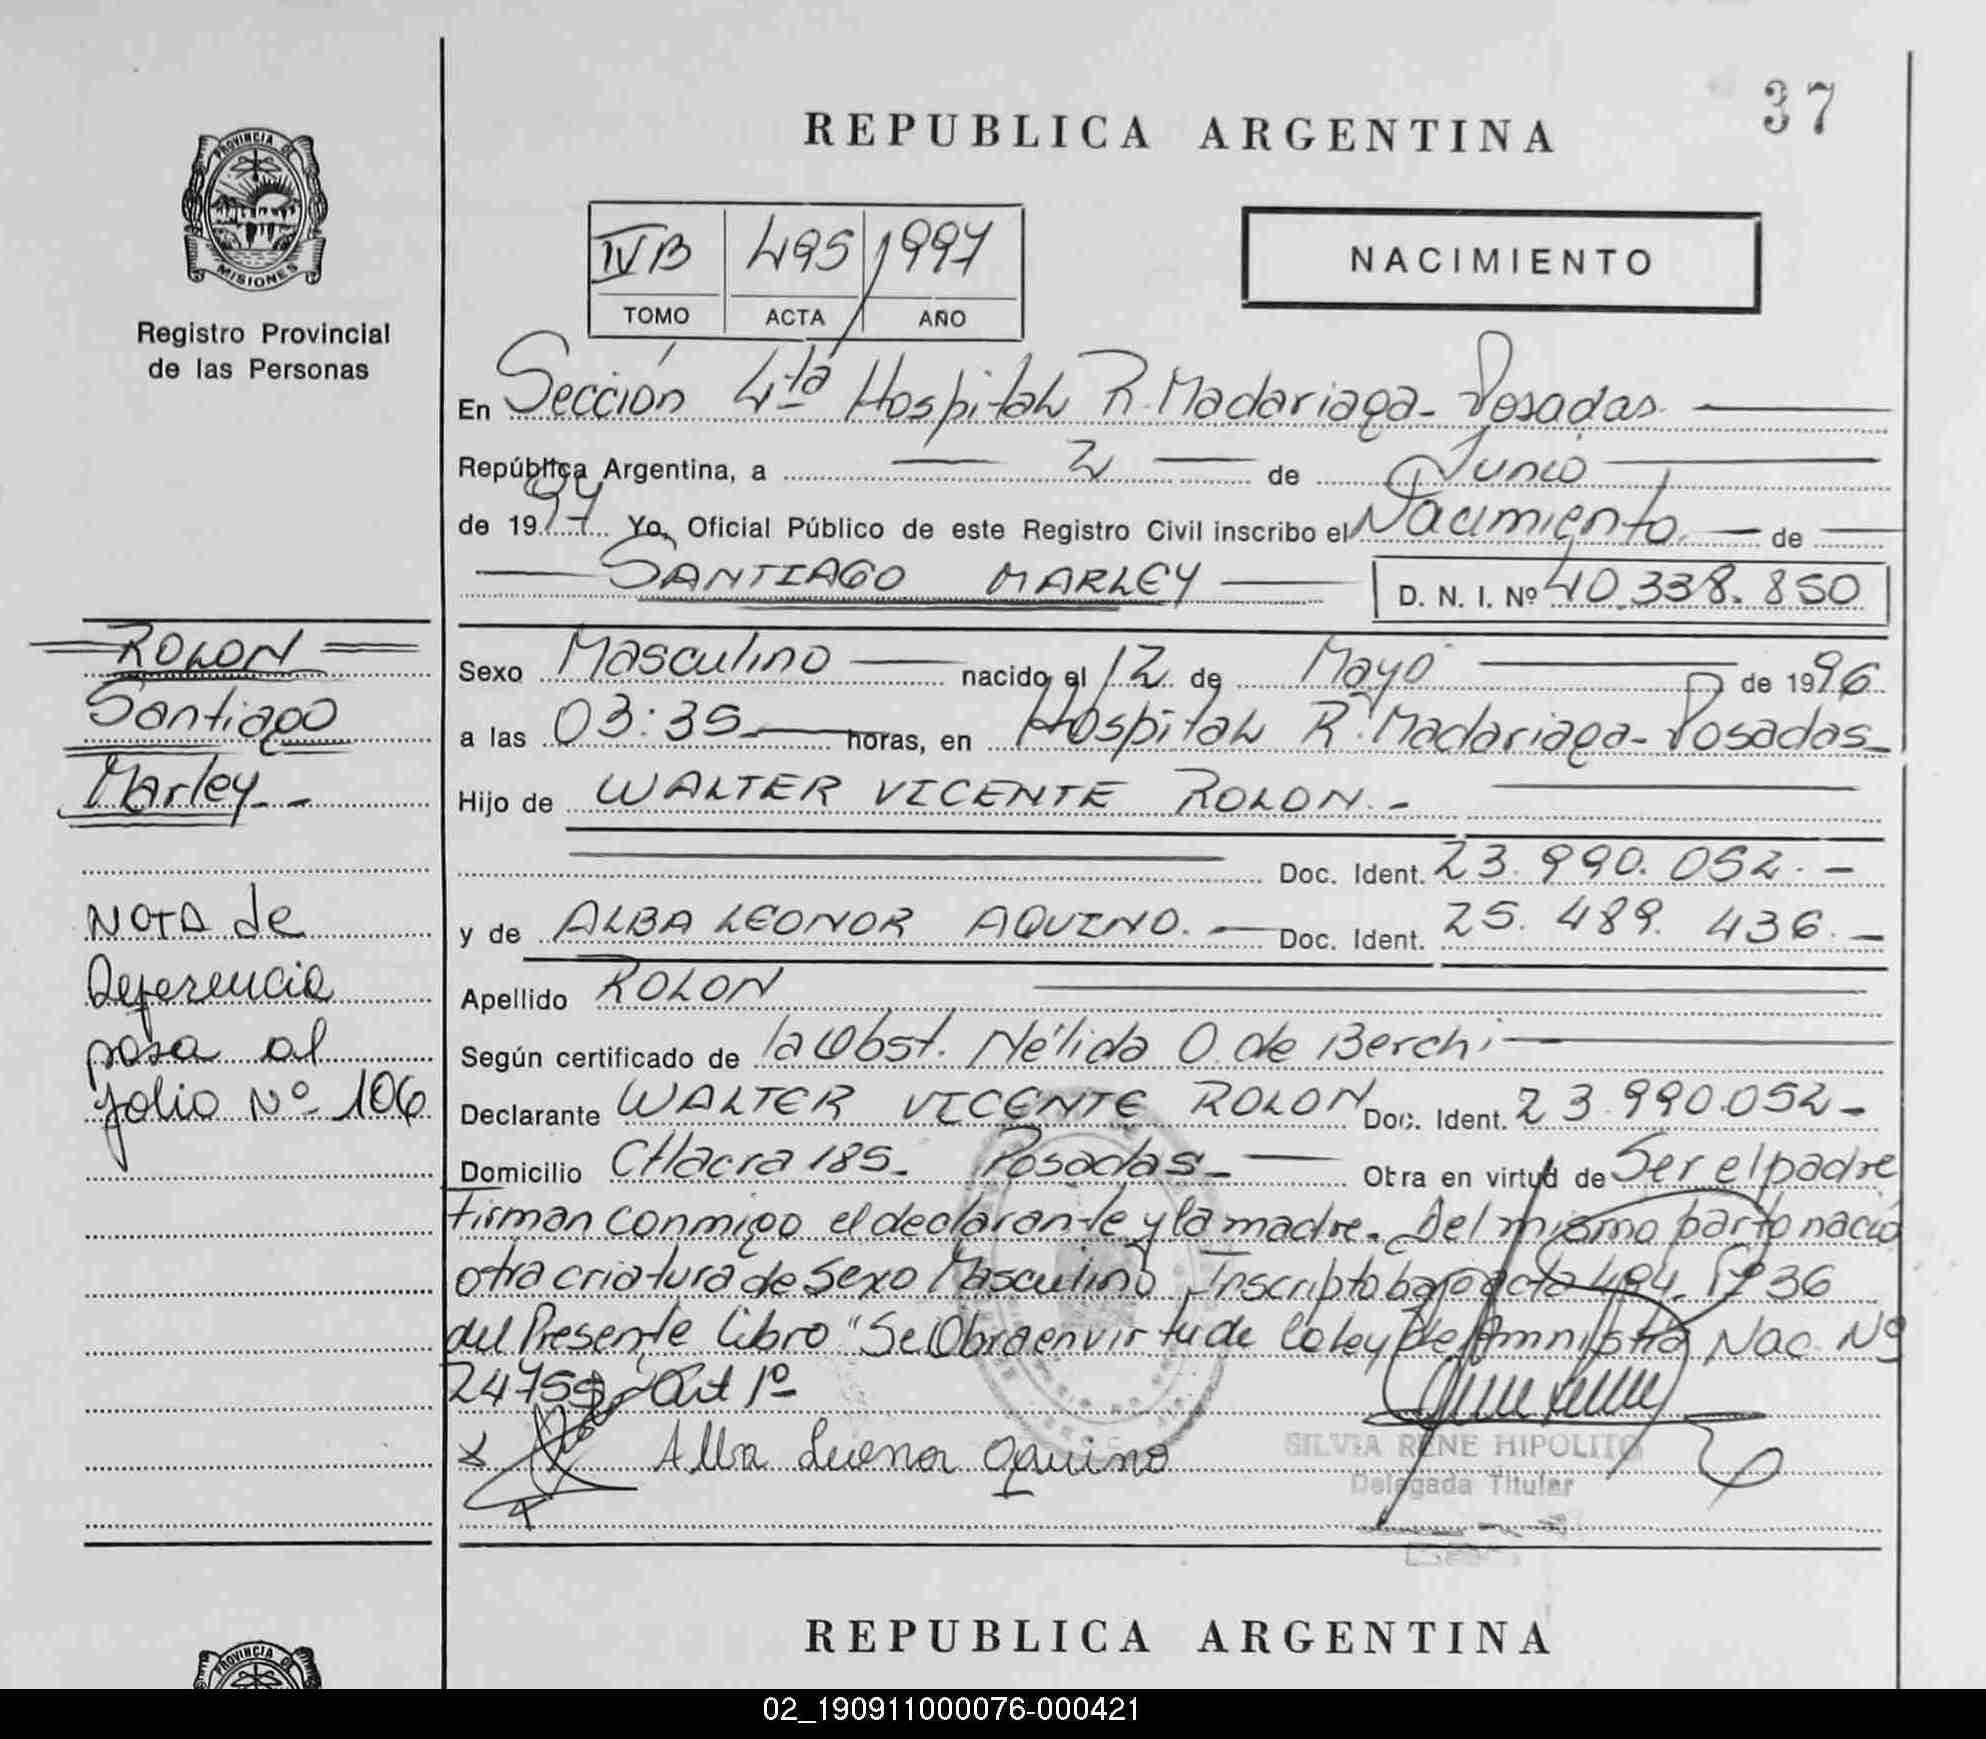 37
REPUBLICA ARGENTINA
PROVINCIA DE
MISIONES
Registro Provincial
de las Personas
IV B 495 1997
TOMO ACTA AÑO
NACIMIENTO
En Sección 4ta Hospital R. Madariaga - Posadas
República Argentina, a 2 de Junio
de 1997. Yo, Oficial Público de este Registro Civil inscribo el Nacimiento de
SANTIAGO MARLEY D. N. I. Nº 40.338.850
Sexo Masculino nacido el 12 de Mayo de 1996
a las 03:35 horas, en Hospital R. Madariaga - Posadas
Hijo de WALTER VICENTE ROLON.-
Doc. Ident. 23.990.052.-
y de ALBA LEONOR AQUINO. Doc. Ident. 25.489.436.-
Apellido ROLON
Según certificado de la Obst. Nélida O. de Berchi
Declarante WALTER VICENTE ROLON Doc. Ident. 23.990.052-
Domicilio CHacra 185. Posadas Obra en virtud de Ser el padre
firman conmigo el declarante y la madre. Del mismo parto nació
otra criatura de sexo Masculino Inscripto bajo acta 494. Fº 36
del Presente Libro "Se Obra en virtud de la ley de Amnistia Nac. Nº
24755 Art 1º
Alba Leonor Aquino
SILVIA RENE HIPOLITO
Delegada Titular
ROLON
Santiago
Marley
NOTA de
Referencia
pasa al
folio Nº 106
REPUBLICA ARGENTINA
PROVINCIA DE
02_190911000076-000421